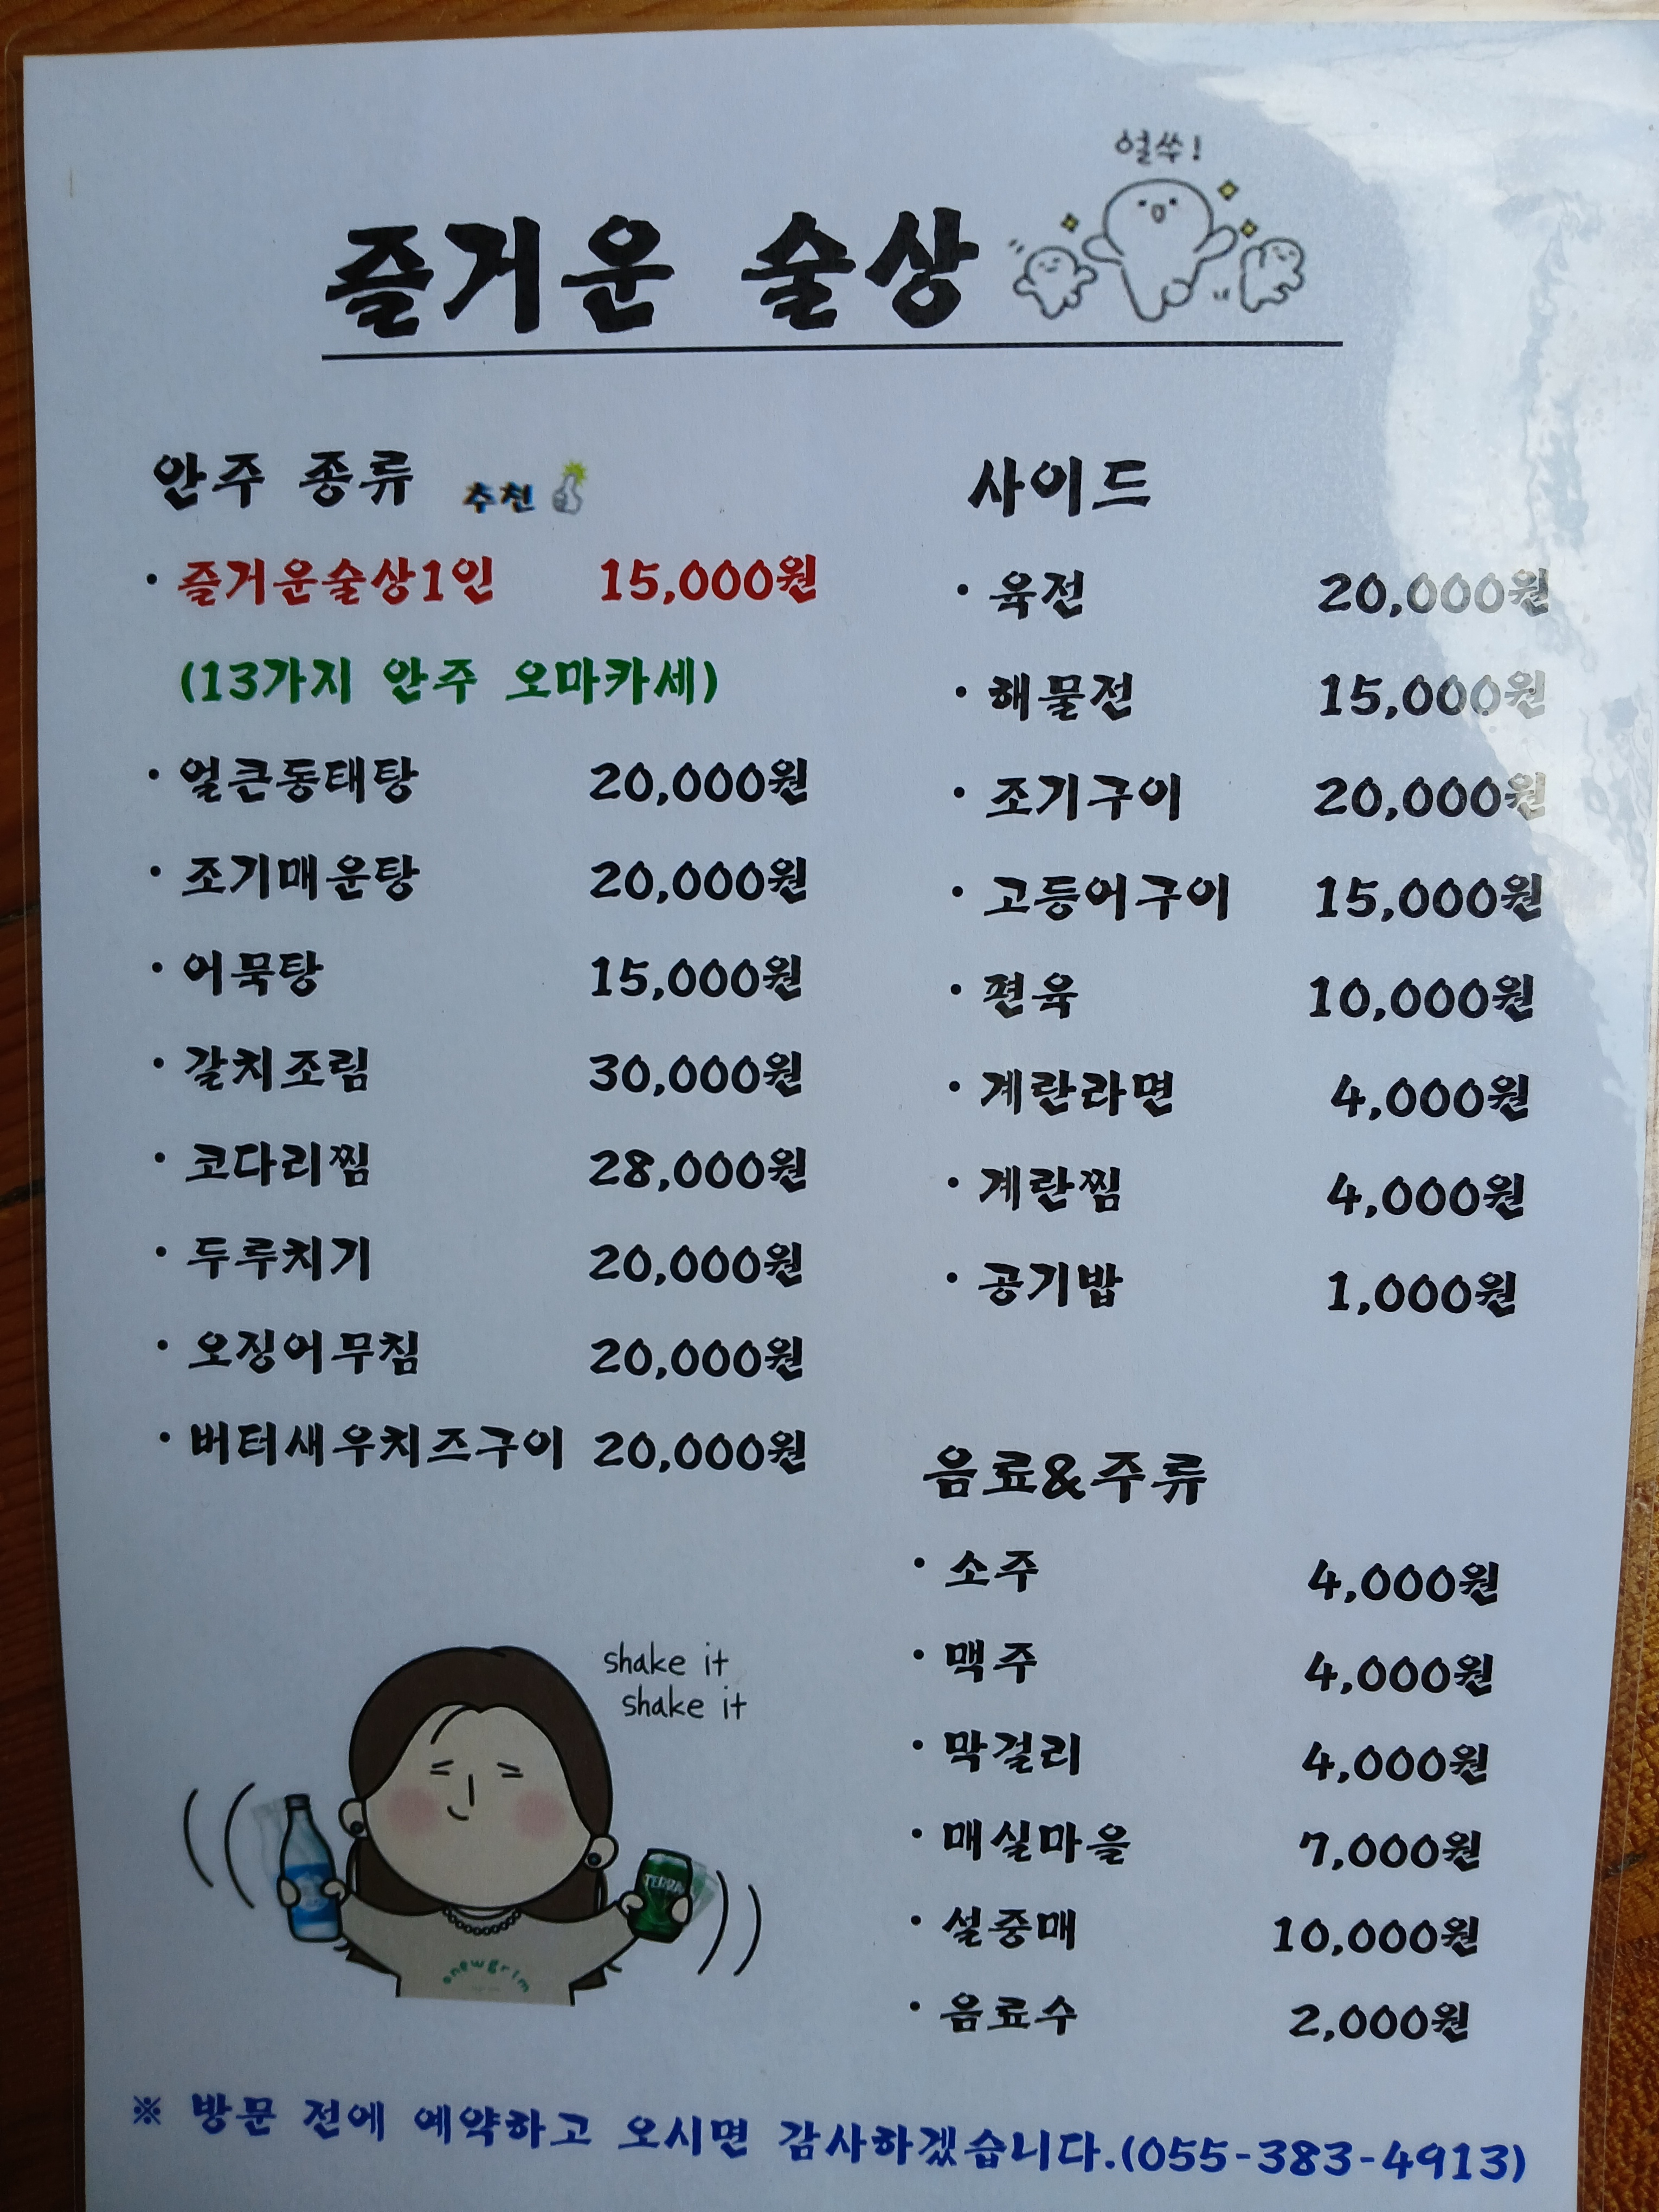 얼쑤!
즐거운 술상
안주 종류 추천
· 즐거운술상1인 15,000원
(13가지 안주 오마카세)
· 얼큰동태탕 20,000원
· 조기매운탕 20,000원
· 어묵탕 15,000원
· 갈치조림 30,000원
· 코다리찜 28,000원
· 두루치기 20,000원
· 오징어무침 20,000원
· 버터새우치즈구이 20,000원
사이드
· 육전 20,000원
· 해물전 15,000원
· 조기구이 20,000원
· 고등어구이 15,000원
· 편육 10,000원
· 계란라면 4,000원
· 계란찜 4,000원
· 공기밥 1,000원
음료&주류
· 소주 4,000원
· 맥주 4,000원
· 막걸리 4,000원
· 매실마을 7,000원
· 설중매 10,000원
· 음료수 2,000원
shake it
shake it
TERRA
onewgrim
※ 방문 전에 예약하고 오시면 감사하겠습니다.(055-383-4913)